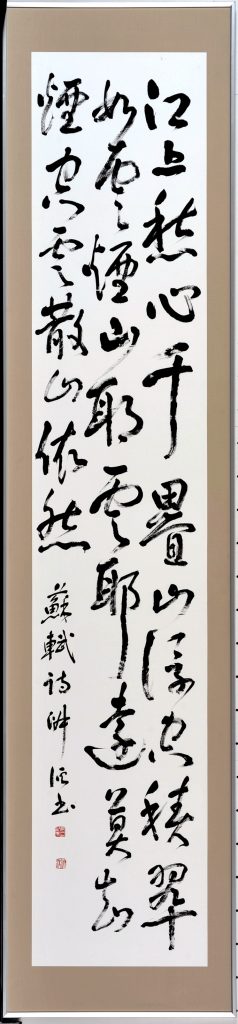 江上愁心千疊山浮空積翠
如雲煙山耶雲耶遠莫知
煙空雲散山依然
蘇軾詩 書